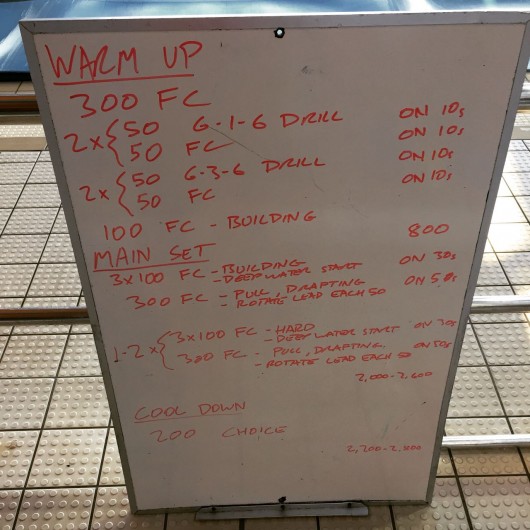 WARM UP
300 FC
2x { 50 6-1-6 DRILL ON 10s
50 FC ON 10s
2x { 50 6-3-6 DRILL ON 10s
50 FC ON 10s
100 FC - BUILDING 800
MAIN SET
3x100 FC - BUILDING ON 30s
- DEEP WATER START
300 FC - PULL, DRAFTING ON 50s
- ROTATE LEAD EACH 50
1-2 x { 3x100 FC - HARD ON 30s
- DEEP WATER START
300 FC - PULL, DRAFTING ON 50s
- ROTATE LEAD EACH 50
2,000-2,600
COOL DOWN
200 CHOICE
2,200-2,800